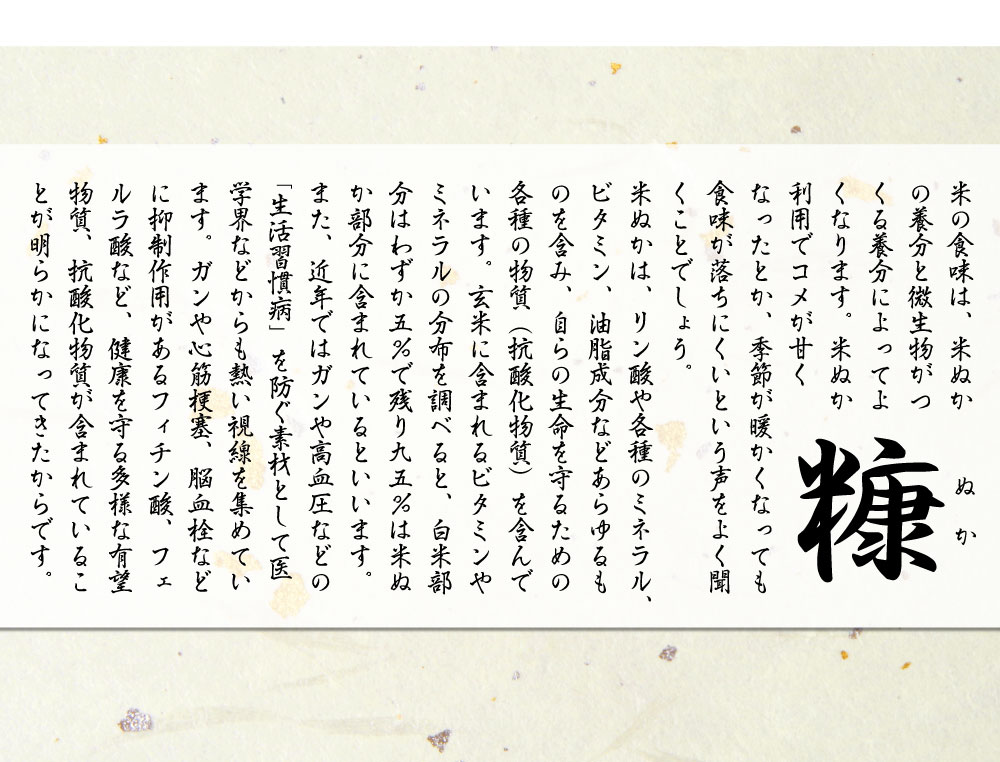 糠
ぬか
米の食味は、米ぬか
の養分と微生物がつ
くる養分によってよ
くなります。米ぬか
利用でコメが甘く
なったとか、季節が暖かくなっても
食味が落ちにくいという声をよく聞
くことでしょう。
米ぬかは、リン酸や各種のミネラル、
ビタミン、油脂成分などあらゆるも
のを含み、自らの生命を守るための
各種の物質（抗酸化物質）を含んで
います。玄米に含まれるビタミンや
ミネラルの分布を調べると、白米部
分はわずか五％で残り九五％は米ぬ
か部分に含まれているといいます。
また、近年ではガンや高血圧などの
「生活習慣病」を防ぐ素材として医
学界などからも熱い視線を集めてい
ます。ガンや心筋梗塞、脳血栓など
に抑制作用があるフィチン酸、フェ
ルラ酸など、健康を守る多様な有望
物質、抗酸化物質が含まれているこ
とが明らかになってきたからです。